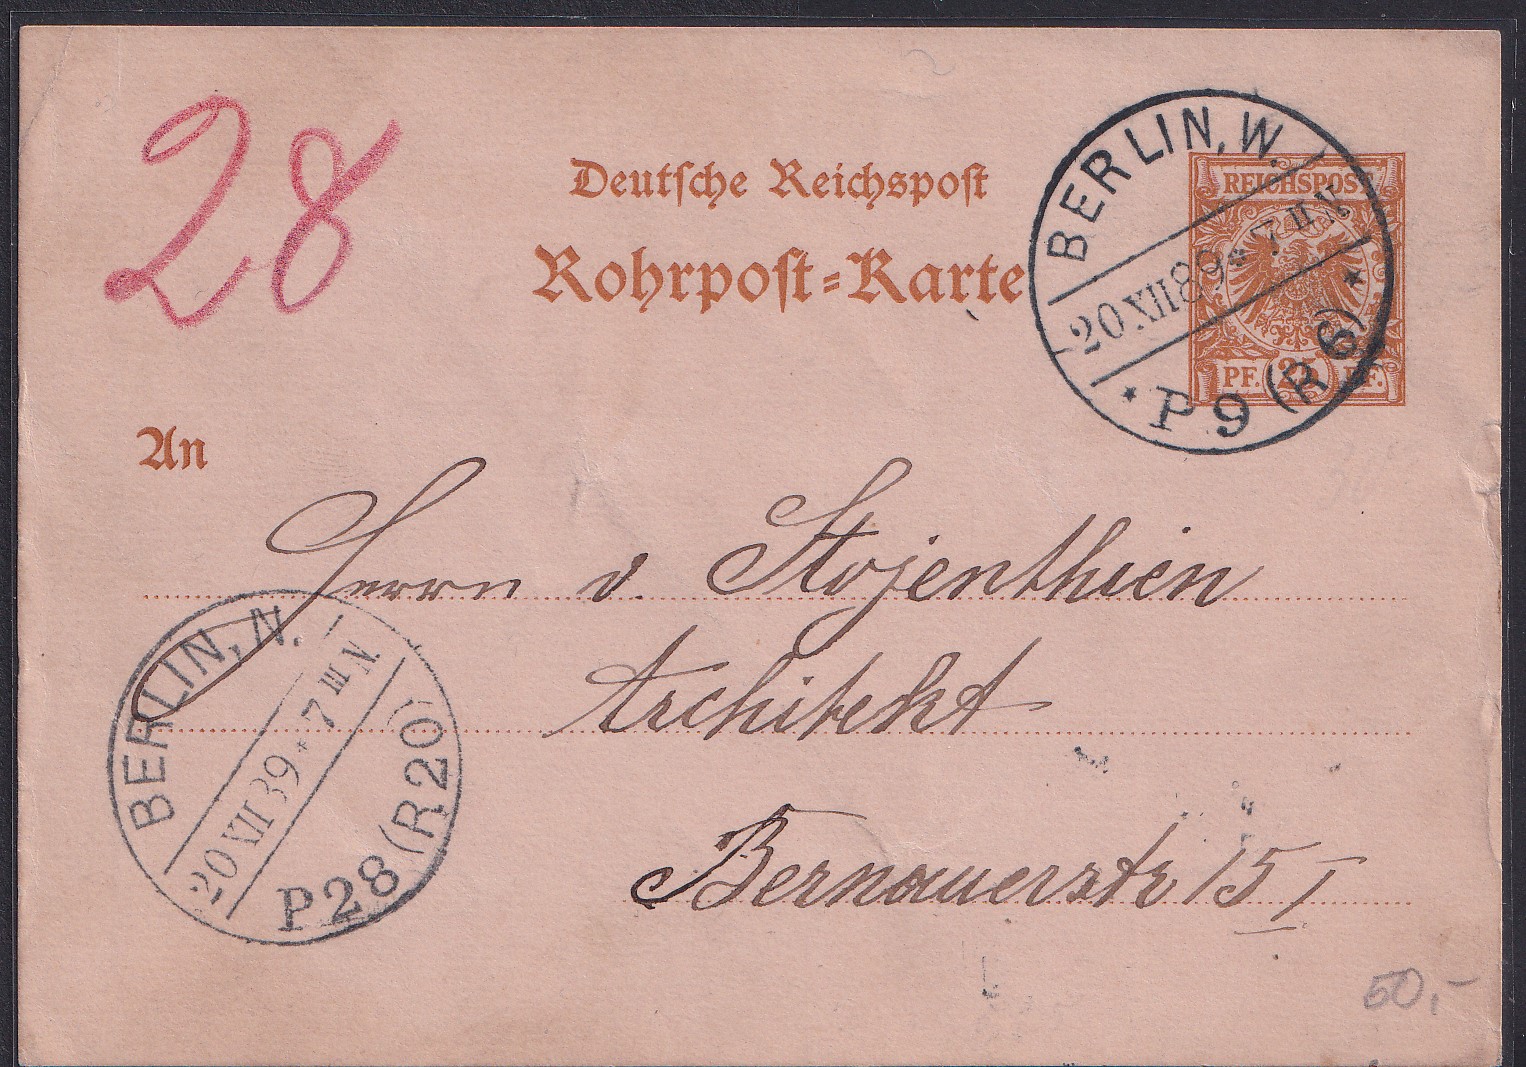 28
Deutsche Reichspost
Rohrpost=Karte
BERLIN, W.
20 XII 89 * 7 II N
* P 9 (R 6) *
REICHSPOST
PF. 25 PF.
An
Herrn v. Stojenthien
Architekt
Bernauerstr 15 I
BERLIN, N.
20 XII 89 * 7 III N.
P28 (R20)
50,-